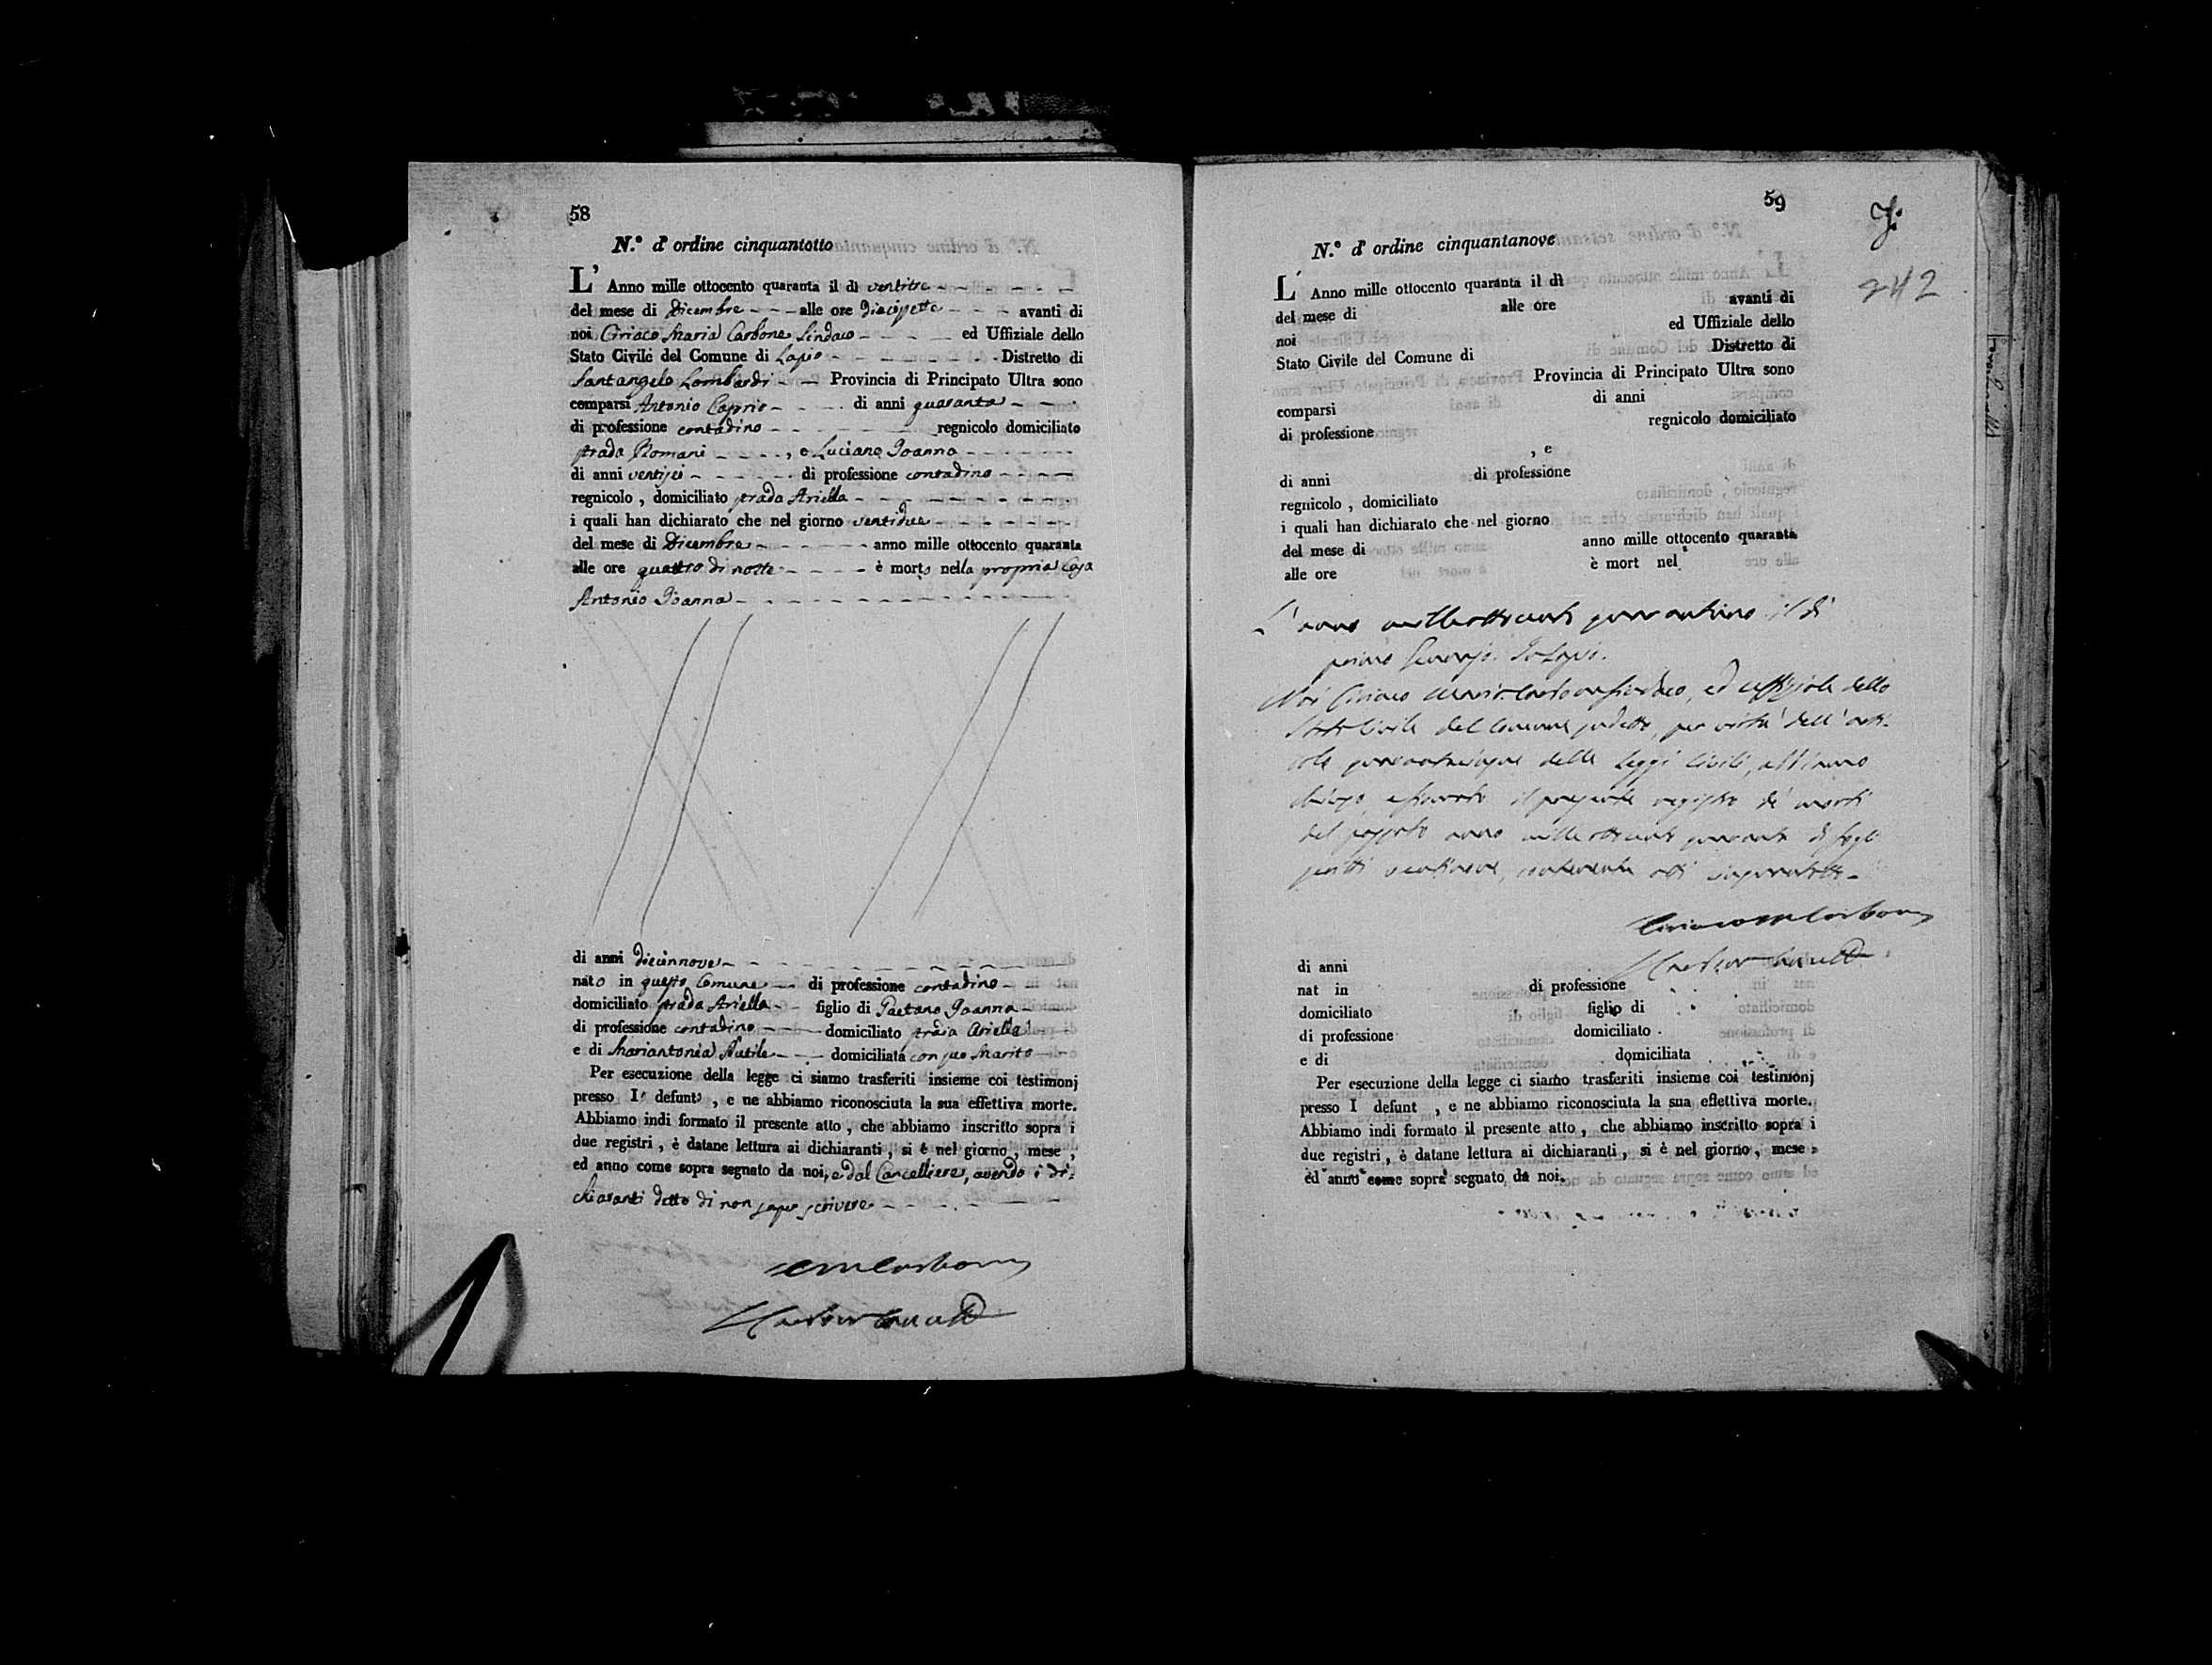 58
N.º d' ordine cinquantotto
L' Anno mille ottocento quaranta il dì ventitre
del mese di Dicembre alle ore diecisette avanti di
noi Ciriaco Maria Carbone Sindaco ed Uffiziale dello
Stato Civile del Comune di Lapio Distretto di
Santangelo Lombardi Provincia di Principato Ultra sono
comparsi Antonio Caprio di anni quaranta
di professione contadino regnicolo domiciliato
strada Romani , e Luciano Joanna
di anni ventisei di professione contadino
regnicolo , domiciliato strada Ariella
i quali han dichiarato che nel giorno ventidue
del mese di Dicembre anno mille ottocento quaranta
alle ore quattro di notte è morto nella propria casa
Antonio Joanna
di anni diecinnove
nato in questo Comune di professione contadino
domiciliato strada Ariella figlio di Gaetano Joanna
di professione contadino domiciliato strada Ariella
e di Mariantonia domiciliata con suo Marito
Per esecuzione della legge ci siamo trasferiti insieme coi testimonj
presso I defunto , e ne abbiamo riconosciuta la sua effettiva morte.
Abbiamo indi formato il presente atto , che abbiamo inscritto sopra i
due registri , è datane lettura ai dichiaranti , si è nel giorno , mese ,
ed anno come sopra segnato da noi, e dal Cancelliere, avendo i di-
chiaranti detto di non saper scrivere
CM Carbone
59
242
N.º d' ordine cinquantanove
L' Anno mille ottocento quaranta il dì
del mese di alle ore avanti di
noi ed Uffiziale dello
Stato Civile del Comune di Distretto di
Provincia di Principato Ultra sono
comparsi di anni
di professione regnicolo domiciliato
, e
di anni di professione
regnicolo , domiciliato
i quali han dichiarato che nel giorno
del mese di anno mille ottocento quaranta
alle ore è mort nel
L' anno milleottocento quarantuno il dì
primo Gennajo In Lapio.
Noi Ciriaco Maria Carbone Sindaco, ed uffiziale dello
Stato Civile del Comune sudetto, per virtù dell' arti-
colo quarantacinque delle leggi Civili, abbiamo
chiuso, e firmato il presente registro de' morti
del passato anno mille ottocento quaranta di fogli
scritti ventinove, contenente atti cinquantotto
Ciriaco M Carbone
di anni
nat in di professione
domiciliato figlio di
di professione domiciliato
e di domiciliata
Per esecuzione della legge ci siamo trasferiti insieme coi testimonj
presso I defunt , e ne abbiamo riconosciuta la sua effettiva morte.
Abbiamo indi formato il presente atto , che abbiamo inscritto sopra i
due registri , è datane lettura ai dichiaranti , si è nel giorno , mese ,
ed anno come sopra segnato da noi.